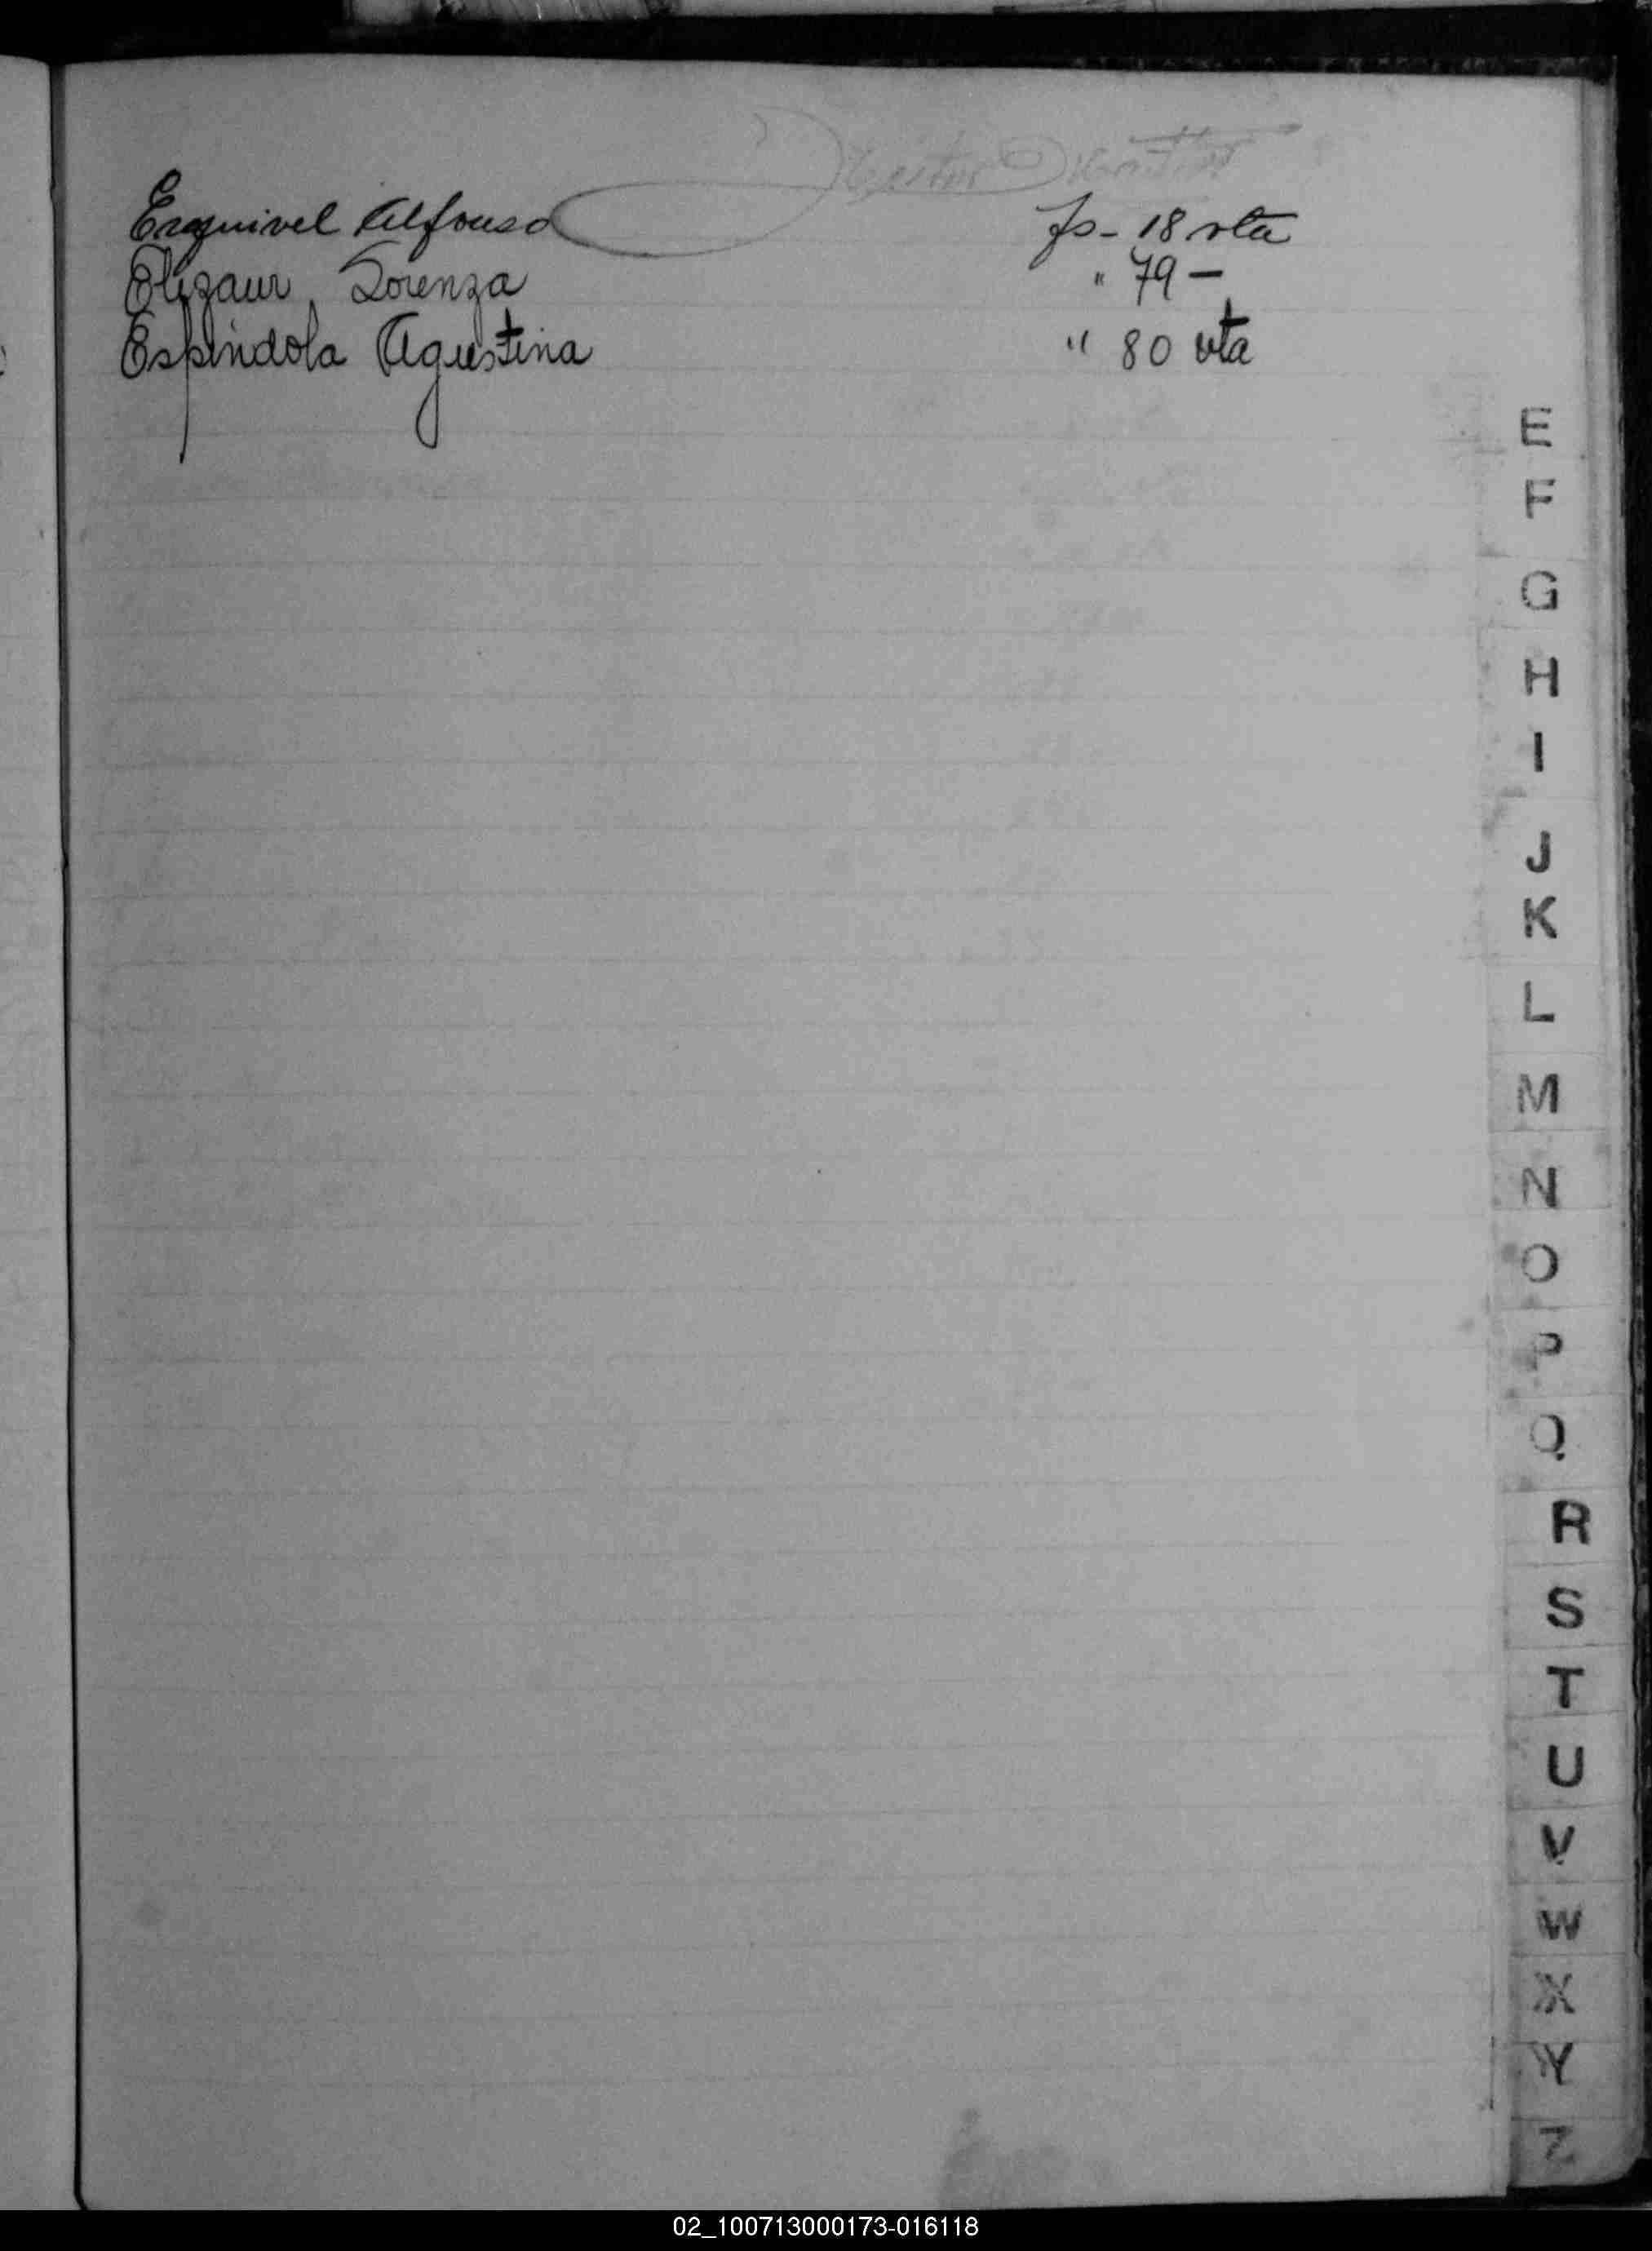 Esquivel Alfonso fs - 18 vta
Elizaur, Lorenza " 79 -
Espíndola Agustina " 80 vta
E
F
G
H
I
J
K
L
M
N
O
P
Q
R
S
T
U
V
W
X
Y
Z
02_100713000173-016118